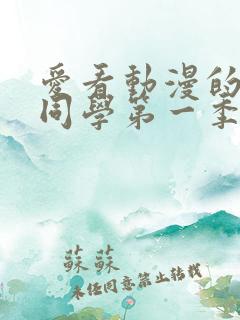 愛看動漫的
同學第一季
蘇蘇
未經同意禁止轉載